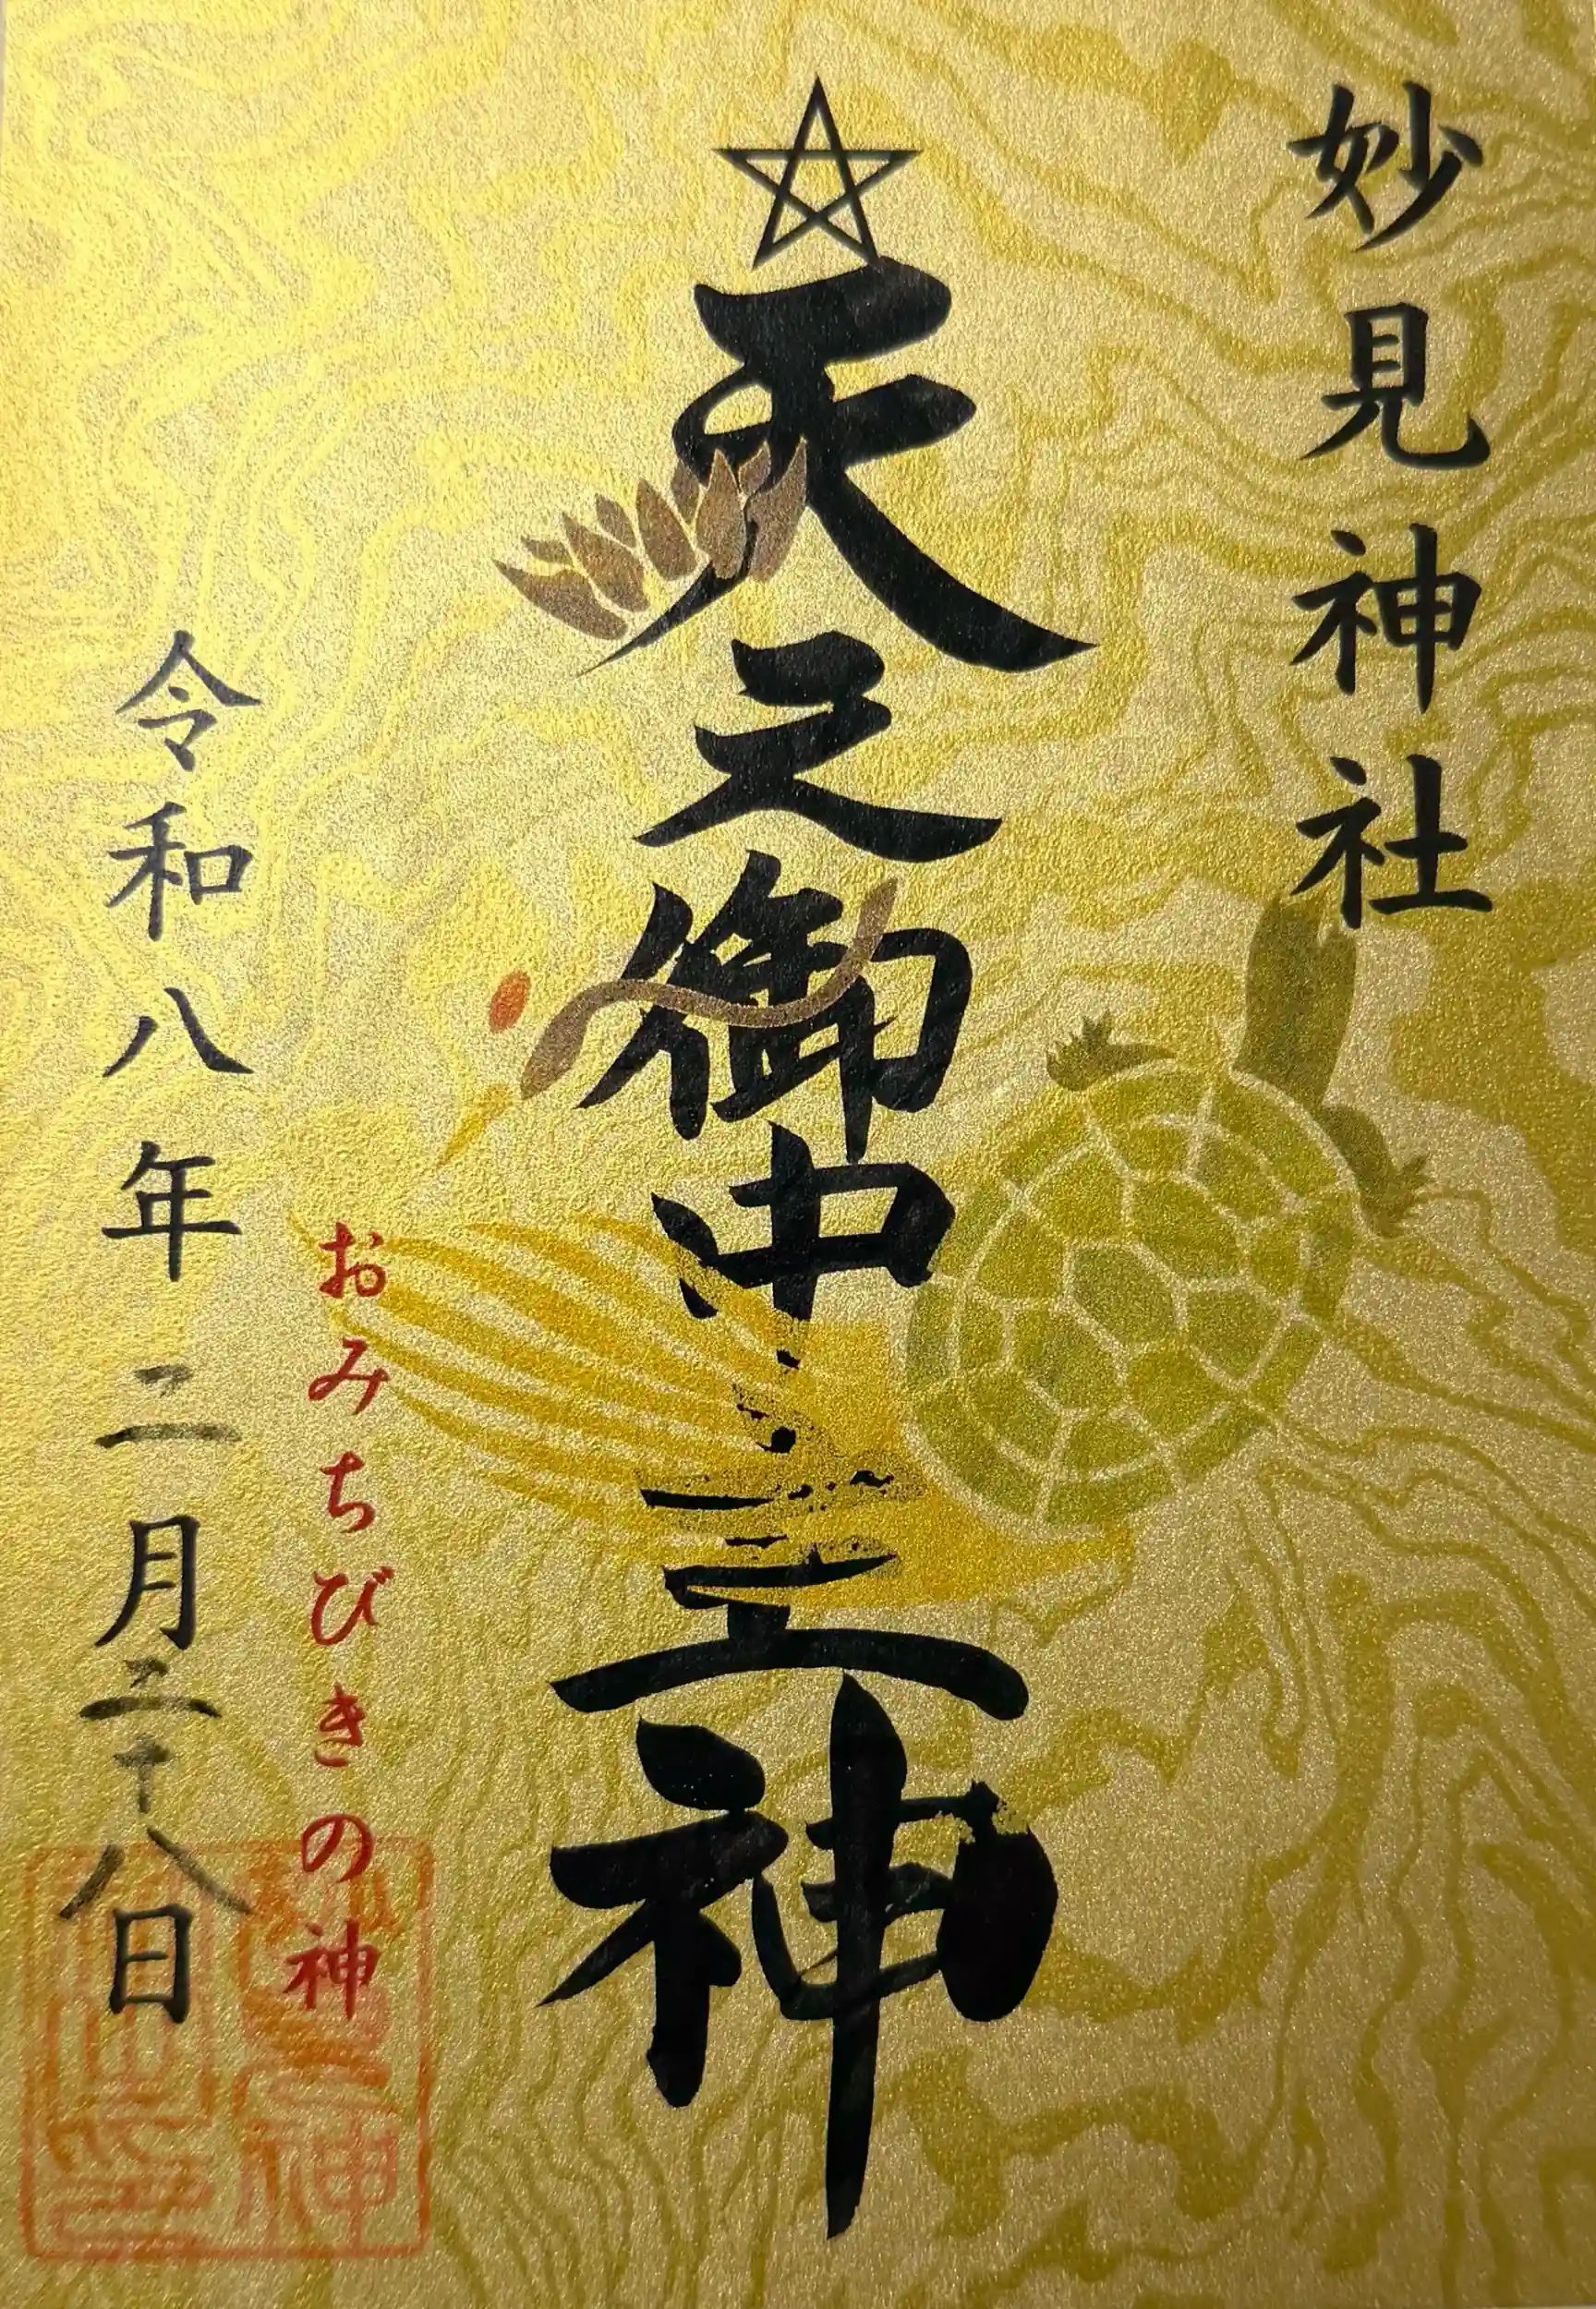 妙見神社
天之御中主神
おみちびきの神
令和八年二月二十八日